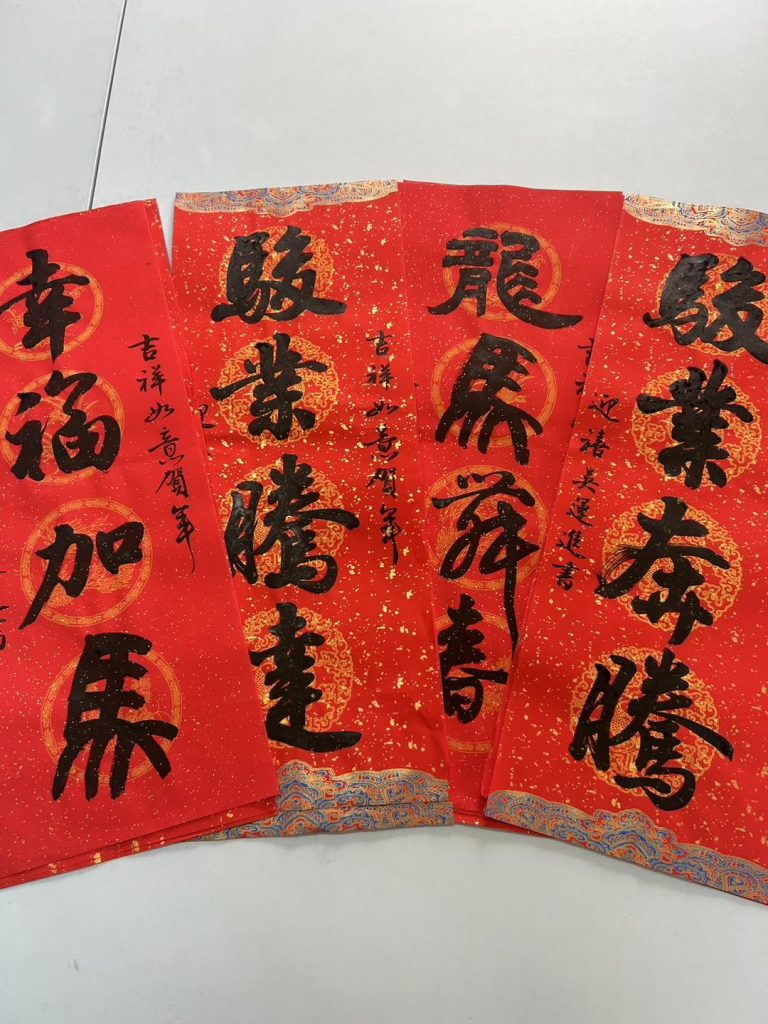 幸福加馬
吉祥如意賀年
迎
駿業騰達
吉祥如意賀年
龍馬舞春
吉祥
迎禧吳運進書
駿業奔騰